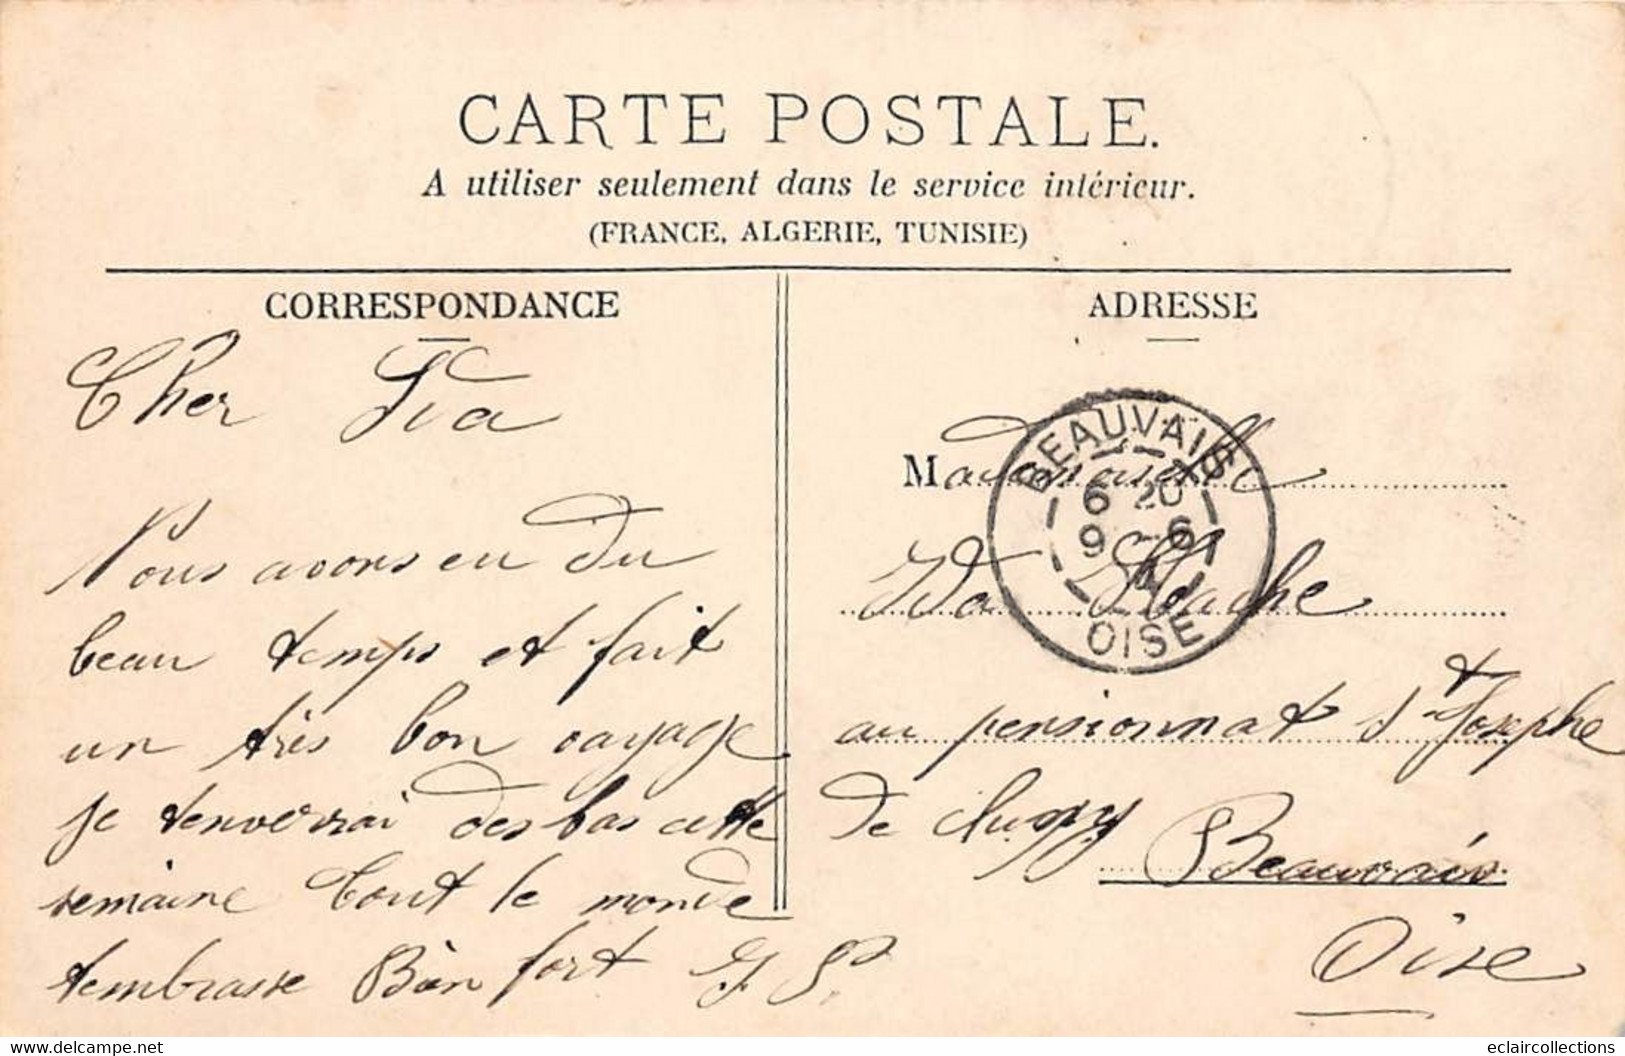 CARTE POSTALE.
A utiliser seulement dans le service intérieur.
(FRANCE, ALGERIE, TUNISIE)
CORRESPONDANCE
Cher
Nous avons eu du
beau temps et fait
un très bon voyage
je tenverrai des bas cette
semaine tout le monde
tembrasse Bien fort
ADRESSE
Mademoiselle
au pensionnat St Josephe
de cluny
Beauvais
Oise
BEAUVAIS
6 20
9 - 6
OISE
delcampe.net
eclaircollections